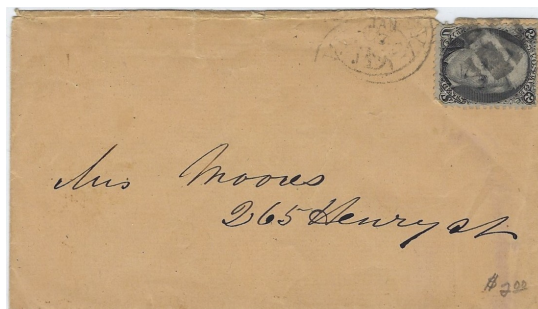 JAN
2
Mrs Moores
265 Henry st
$2.00